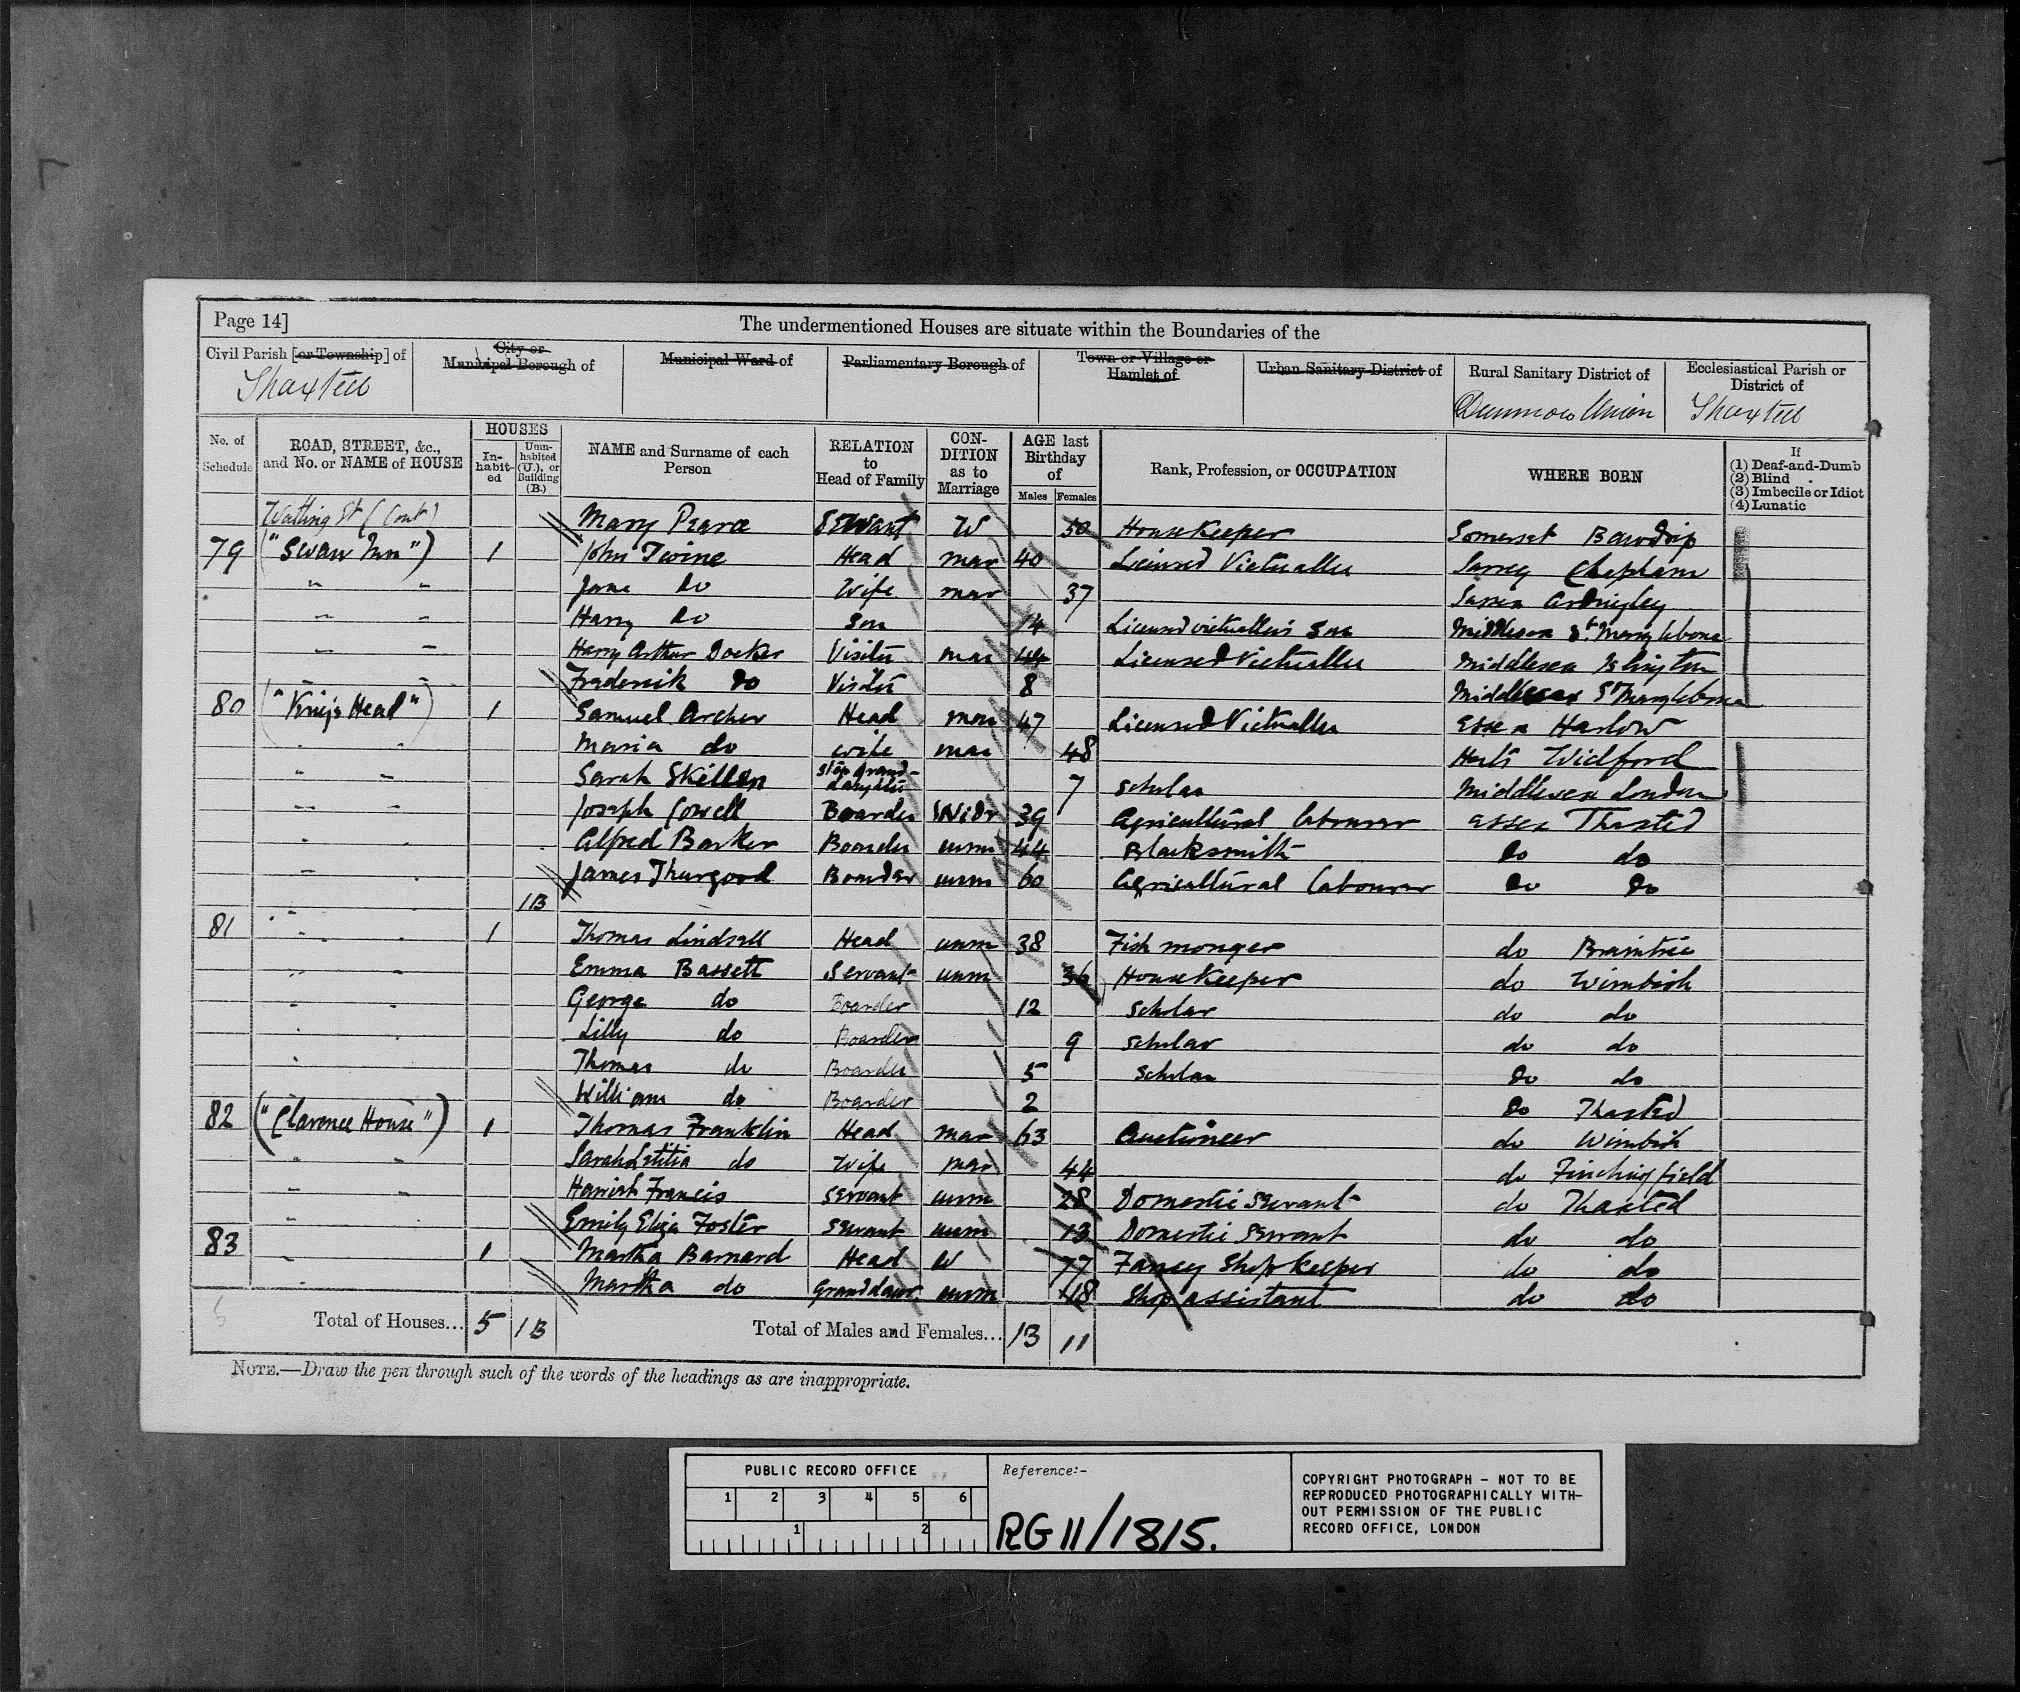 Page 14]
The undermentioned Houses are situate within the Boundaries of the
Civil Parish [or Township] of
City or Municipal Borough of
Municipal Ward of
Parliamentary Borough of
Town or Village or Hamlet of
Urban Sanitary District of
Rural Sanitary District of
Ecclesiastical Parish or District of
Thaxted
Dunmow Union
Thaxted
No. of Schedule
ROAD, STREET, &c., and No. or NAME of HOUSE
HOUSES
In-habit-ed
Unin-habited (U.), or Building (B.)
NAME and Surname of each Person
RELATION to Head of Family
CON-DITION as to Marriage
AGE last Birthday of
Males
Females
Rank, Profession, or OCCUPATION
WHERE BORN
If
(1) Deaf-and-Dumb
(2) Blind
(3) Imbecile or Idiot
(4) Lunatic
Watling St (Cont) Mary Pearce Servant W 50 Housekeeper Somerset Bawdrip
79 ("Swan Inn") 1 John Twine Head mar 40 Licensed Victualler Surrey Clapham
" " Jane do Wife mar 37 Sussex Ardingley
" " Harry do Son 14 Licensed victuallers Son Middlesex St Marylebone
" " Harry Arthur Docker Visitor mar 44 Licensed Victualler Middlesex Islington
" " Frederick do Visitor 8 Middlesex St Marylebone
80 ("Kings Head") 1 Samuel Archer Head mar 47 Licensed Victualler Essex Harlow
" " Maria do wife mar 48 Herts Widford
" " Sarah Skillen step grand-daughter 7 scholar Middlesex London
" " Joseph Cowell Boarder Widr 39 Agricultural labourer Essex Thaxted
" " Alfred Barker Boarder unm 44 Blacksmith do do
" " James Thurgood Boarder unm 60 Agricultural labourer do do
" " 1B
81 " " 1 Thomas Lindsell Head unm 38 Fish monger do Braintree
" " Emma Bassett Servant unm 36 Housekeeper do Wimbish
" " George do Boarder 12 scholar do do
" " Lilly do Boarder 9 scholar do do
" " Thomas do Boarder 5 scholar do do
" " William do Boarder 2 do Thaxted
82 ("Clarence House") 1 Thomas Franklin Head mar 63 Auctioneer do Wimbish
" " Sarah Letitia do Wife mar 44 do Finchingfield
" " Harriet Francis servant unm 28 Domestic servant do Thaxted
" " Emily Eliza Foster servant unm 13 Domestic servant do do
83 " 1 Martha Barnard Head W 77 Fancy Shop keeper do do
" Martha do Granddaur unm 18 Shop assistant do do
Total of Houses... 5 1B
Total of Males and Females... 13 11
NOTE.—Draw the pen through such of the words of the headings as are inappropriate.
PUBLIC RECORD OFFICE
1 2 3 4 5 6
1 2
Reference:-
RG 11/1815.
COPYRIGHT PHOTOGRAPH - NOT TO BE
REPRODUCED PHOTOGRAPHICALLY WITH-
OUT PERMISSION OF THE PUBLIC
RECORD OFFICE, LONDON